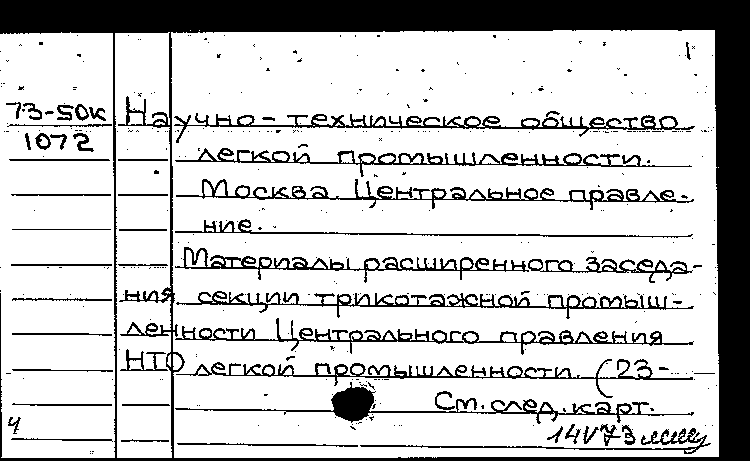 1
73-50к Научно-техническое общество
1072 легкой промышленности.
Москва. Центральное правле-
ние.
Материалы расширенного заседа-
ния секции трикотажной промыш-
ленности Центрального правления
НТО легкой промышленности. (23-
См. след. карт.
4 14V73